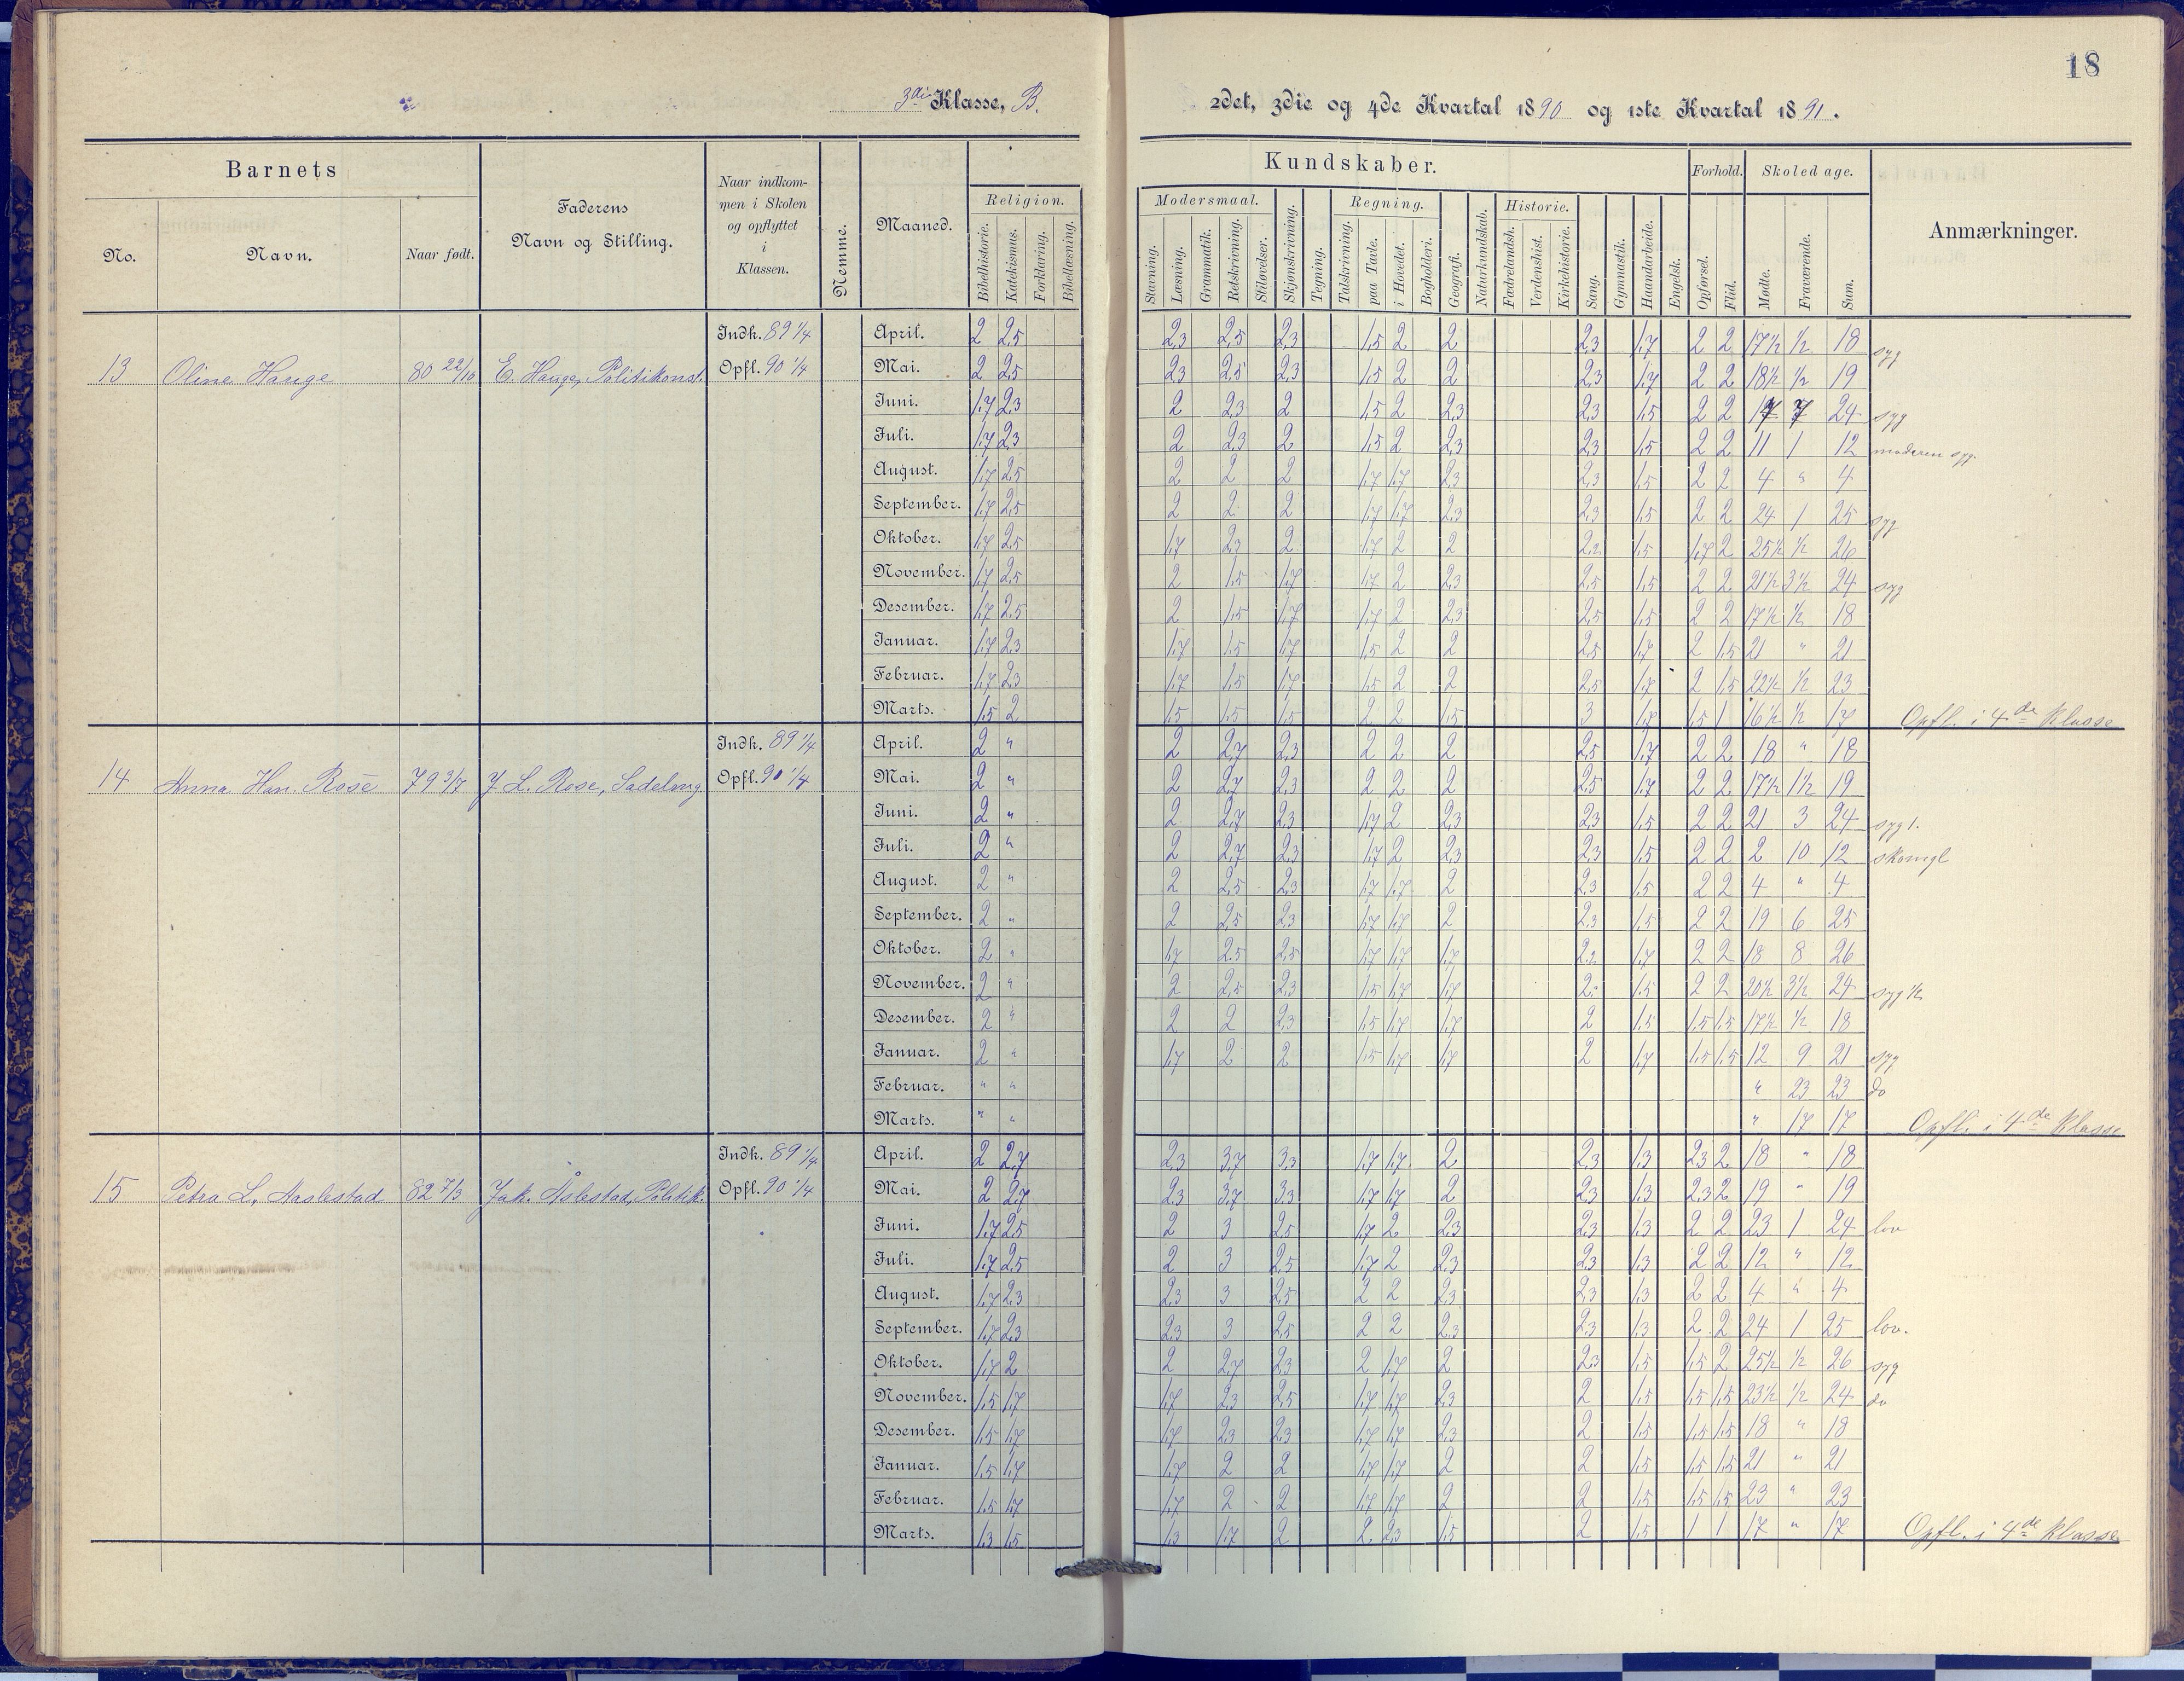 18
3die Klasse, B.
2det, 3die og 4de Kvartal 1890 og 1ste Kvartal 1891.
Barnets
No.
Navn.
Naar født.
Faderens
Navn og Stilling.
Naar indkom-
men i Skolen
og opflyttet
i
Klassen.
Nemme.
Maaned.
Kundskaber.
Religion.
Bibelhistorie.
Katekismus.
Forklaring.
Bibellæsning.
Modersmaal.
Stavning.
Læsning.
Grammatik.
Retskrivning.
Stiløvelser.
Skjønskrivning.
Tegning.
Regning.
Talskrivning.
paa Tavle.
i Hovedet.
Bogholderi.
Geografi.
Naturkundskab.
Historie.
Fædrelandsh.
Verdenshist.
Kirkehistorie.
Sang.
Gymnastik.
Haandarbeide.
Engelsk.
Forhold.
Opførsel.
Flid.
Skoledage.
Mødte.
Fraværende.
Sum.
Anmærkninger.
13 Oline Hauge 80 22/10 E. Hauge, Politikonst. Indk. 89 1/4 Opfl. 90 1/4
April. 2 2,5 2,3 2,5 2,3 1,5 2 2 2,3 1,7 2 2 17½ ½ 18 syg
Mai. 2 2,5 2,3 2,5 2,3 1,5 2 2 2,3 1,7 2 2 18½ ½ 19
Juni. 1,7 2,3 2 2,3 2 1,5 2 2,3 2,3 1,5 2 2 17 7 24 syg
Juli. 1,7 2,3 2 2,3 2 1,5 2 2,3 2,3 1,5 2 2 11 1 12 moderen syg.
August. 1,7 2,5 2 2 2 1,7 1,7 2,3 2,3 1,5 2 2 4 " 4
September. 1,7 2,5 2 2 2 1,7 1,7 2,3 2,3 1,5 2 2 24 1 25 syg
Oktober. 1,7 2,5 1,7 2,3 2 1,7 2 2 2,2 1,5 1,7 2 25½ ½ 26
November. 1,7 2,5 2 1,5 1,7 1,7 2 2,3 2,5 1,5 2 2 21½ 3½ 24 syg
Desember. 1,7 2,5 2 1,5 1,7 1,7 2 2,3 2,5 1,5 2 2 17½ ½ 18
Januar. 1,7 2,3 1,7 1,5 1,7 1,5 2 2 2,5 1,7 2 1,5 21 " 21
Februar. 1,7 2,3 1,7 1,5 1,7 1,5 2 2 2,5 1,7 2 1,5 22½ ½ 23
Marts. 1,5 2 1,5 1,5 1,5 2 2 1,5 3 1,7 1,5 1 16½ ½ 17 Opfl. i 4de Klasse
14 Anna Han. Rose 79 3/7 J L. Rose, Sadelmg Indk. 89 1/4 Opfl. 90 1/4
April. 2 " 2 2,7 2,3 2 2 2 2,5 1,7 2 2 18 " 18
Mai. 2 " 2 2,7 2,3 2 2 2 2,5 1,7 2 2 17½ 1½ 19
Juni. 2 " 2 2,7 2,3 1,7 2 2,3 2,3 1,5 2 2 21 3 24 syg 1.
Juli. 2 " 2 2,7 2,3 1,7 2 2,3 2,3 1,5 2 2 2 10 12 skomgl
August. 2 " 2 2,5 2,3 1,7 1,7 2 2,3 1,5 2 2 4 " 4
September. 2 " 2 2,5 2,3 1,7 1,7 2 2,3 1,5 2 2 19 6 25
Oktober. 2 " 1,7 2,5 2,5 1,7 1,7 1,7 2,2 1,7 2 2 18 8 26
November. 2 " 2 2,5 2,3 1,5 1,7 1,7 2 1,5 2 2 20½ 3½ 24 syg ½
Desember. 2 " 2 2 2,3 1,5 1,7 1,7 2 1,5 1,5 1,5 17½ ½ 18
Januar. 2 " 1,7 2 2 1,5 1,7 1,7 2 1,7 1,5 1,5 12 9 21 syg
Februar. " " " 23 23 do
Marts. " " " 17 17 Opfl. i 4de Klasse
15 Petra L. Aaslestad 82 7/3 Jak. Åslestad, Politik. Indk. 89 1/4 Opfl. 90 1/4
April. 2 2,7 2,3 3,7 3,3 1,7 1,7 2 2,3 1,3 2,3 2 18 " 18
Mai. 2 2,7 2,3 3,7 3,3 1,7 1,7 2 2,3 1,3 2,3 2 19 " 19
Juni. 1,7 2,5 2 3 2,5 1,7 2 2,3 2,3 1,3 2 2 23 1 24 lov
Juli. 1,7 2,5 2 3 2,5 1,7 2 2,3 2,3 1,3 2 2 12 " 12
August. 1,7 2,3 2,3 3 2,5 2 2 2,3 2,3 1,3 2 2 4 " 4
September. 1,7 2,3 2,3 3 2,5 2 2 2,3 2,3 1,3 2 2 24 1 25 lov.
Oktober. 1,7 2 2 2,7 2,3 2 1,7 2 2,3 1,5 1,5 2 25½ ½ 26 syg
November. 1,5 1,7 1,7 2,3 2,5 1,7 1,7 2,3 2 1,5 1,5 1,5 23½ ½ 24 do
Desember. 1,5 1,7 1,7 2,3 2,3 1,7 1,7 2,3 2 1,5 1,5 1,5 18 " 18
Januar. 1,5 1,7 1,7 2 2 1,7 1,7 2 2 1,5 1,5 1,5 21 " 21
Februar. 1,5 1,7 1,7 2 2 1,7 1,7 2 2 1,5 1,5 1,5 23 " 23
Marts. 1,3 1,5 1,3 1,7 2 2 2,3 1,5 2 1,5 1 1 17 " 17 Opfl. i 4de Klasse